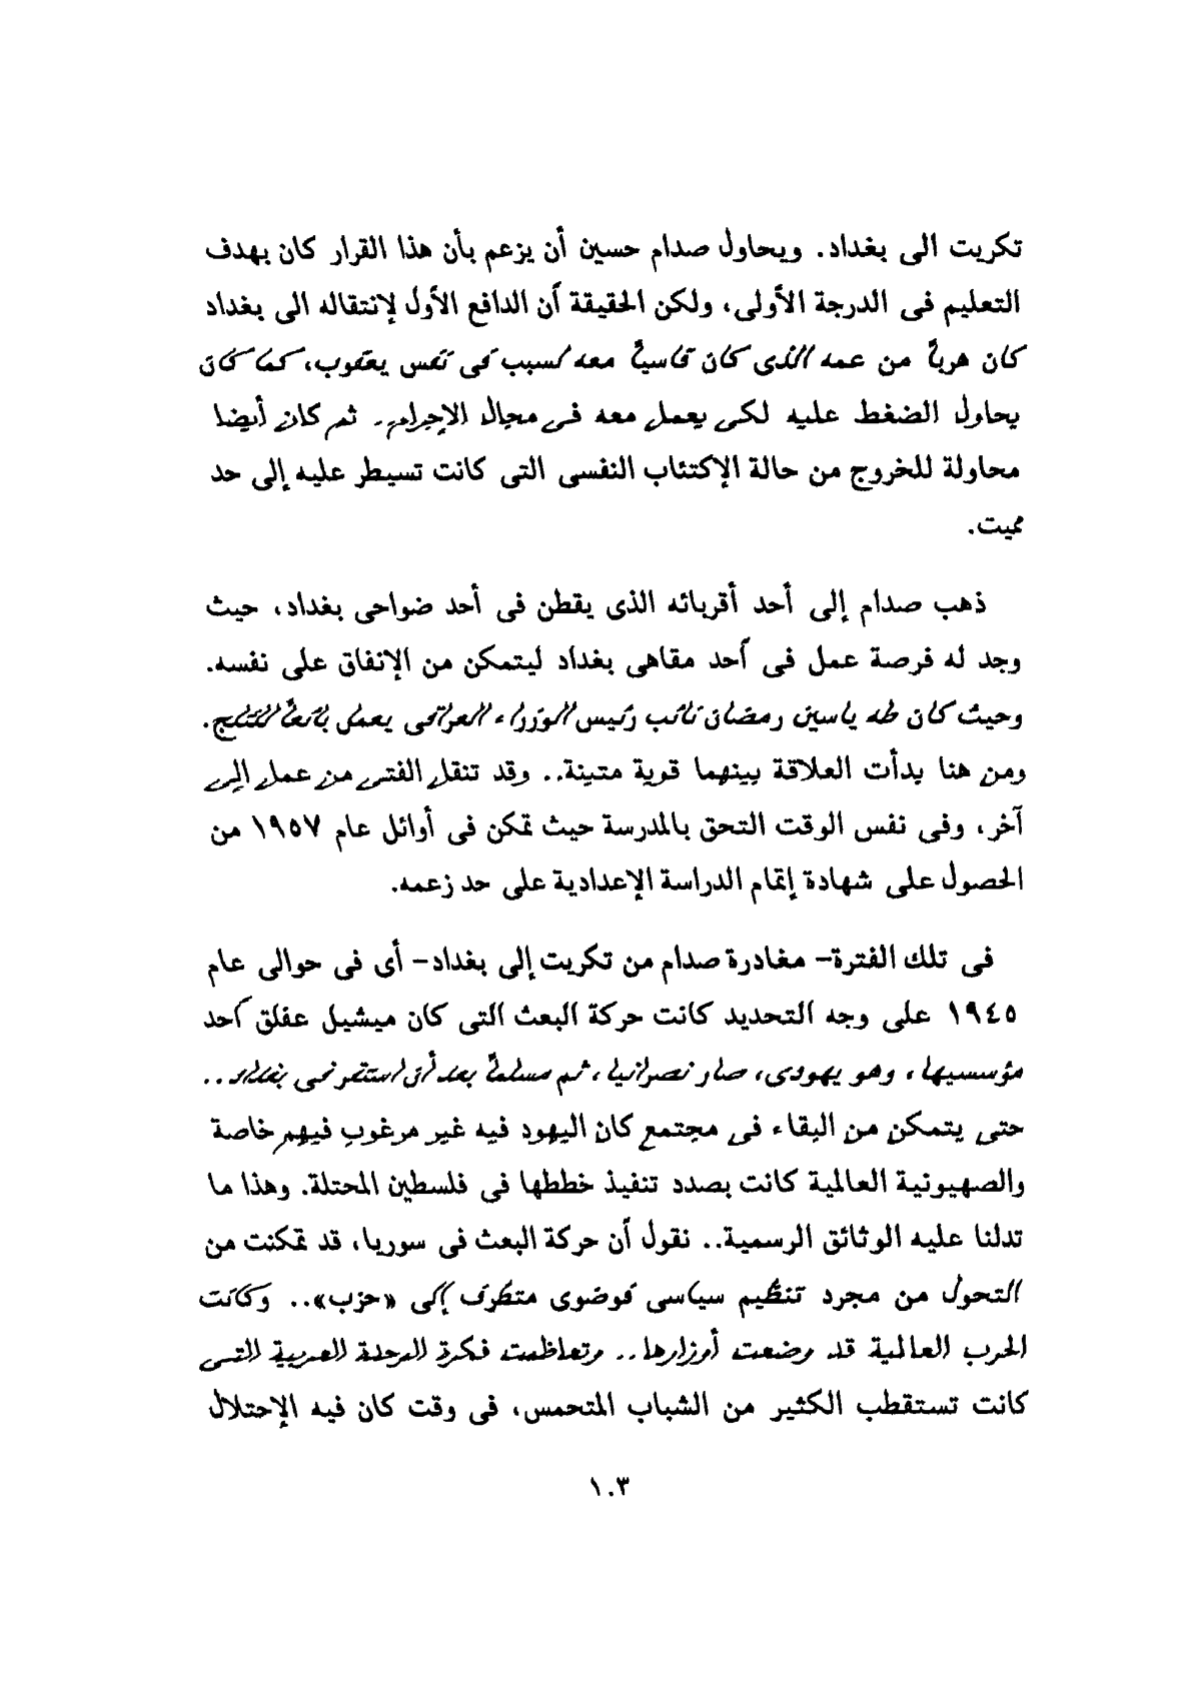 تكريت الى بغداد. ويحاول صدام حسين أن يزعم بأن هذا القرار كان بهدف
التعليم فى الدرجة الأولى، ولكن الحقيقة أن الدافع الأول لإنتقاله الى بغداد
كان هرباً من عمه الذى كان قاسياً معه لسبب فى نفس يعقوب، كما كان
يحاول الضغط عليه لكى يعمل معه فى مجال الإجرام. ثم كان أيضا
محاولة للخروج من حالة الإكتئاب النفسى التى كانت تسيطر عليه إلى حد
مميت.
ذهب صدام إلى أحد أقربائه الذى يقطن فى أحد ضواحى بغداد، حيث
وجد له فرصة عمل فى أحد مقاهى بغداد ليتمكن من الإنفاق على نفسه.
وحيث كان طه ياسين رمضان نائب رئيس الوزراء العراقى يعمل بائعاً للثلج.
ومن هنا بدأت العلاقة بينهما قوية متينة.. وقد تنقل الفتى من عمل إلى
آخر، وفى نفس الوقت التحق بالمدرسة حيث تمكن فى أوائل عام ١٩٥٧ من
الحصول على شهادة إتمام الدراسة الإعدادية على حد زعمه.
فى تلك الفترة- مغادرة صدام من تكريت إلى بغداد- أى فى حوالى عام
١٩٤٥ على وجه التحديد كانت حركة البعث التى كان ميشيل عفلق أحد
مؤسسيها، وهو يهودى، صار نصرانيا، ثم مسلماً بعد أن استقر فى بغداد..
حتى يتمكن من البقاء فى مجتمع كان اليهود فيه غير مرغوبِ فيهم خاصة
والصهيونية العالمية كانت بصدد تنفيذ خططها فى فلسطين المحتلة. وهذا ما
تدلنا عليه الوثائق الرسمية.. نقول أن حركة البعث فى سوريا، قد تمكنت من
التحول من مجرد تنظيم سياسى فوضوى متطرف إلى «حزب».. وكانت
الحرب العالمية قد وضعت أوزارها.. وتعاظمت فكرة الوحدة العربية التى
كانت تستقطب الكثير من الشباب المتحمس، فى وقت كان فيه الإحتلال
١٠٣